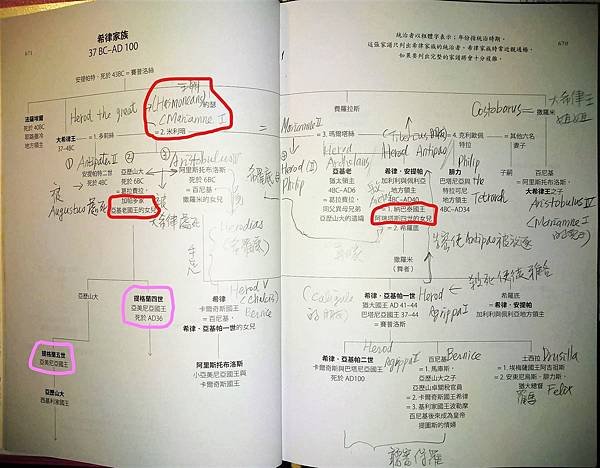 671
希律家族
37 BC–AD 100
670
統治者以粗體字表示；年份指統治時期。
這張家譜只列出希律家族的統治者。希律家族時常近親通婚，
如果要列出完整的家譜將會十分複雜。
安提帕特，死於 43BC = 賽普洛絲
法薩埃爾
死於 40BC
耶路撒冷
地方領主
Herod the great
大希律王
37–4BC
= 1. 多莉絲
(Hasmoneans)的
(Mariamne I
= 2. 米利暗
費羅拉斯
Costobarus =
撒羅米
大希律王
姐姐
Mariamne II
= 3. 瑪爾塔絲
= 4. 克利歐佩特拉
= 其他六名妻子
Herod Antipas
Philip
① Antipater II
安提帕特二世
死於 4BC
被
Augustus 處死
亞歷山大
死於 6BC
= 葛拉費拉，
加帕多家
亞基老國王的女兒
③ Aristobulus IV
阿里斯托布洛斯
死於 6BC
= 百尼基
撒羅米的女兒
大希律處死
Herod (I)
Philip
亞基老
猶大領主
4BC–AD6
= 葛拉費拉，
同父異母兄弟
亞歷山大的遺孀
希律·安提帕
加利利與佩利亞
地方領主
4BC–AD40
= 1. 納巴泰國王
阿瑞塔斯四世的女兒
= 2. 希羅底
腓力
巴塔尼亞與
特拉可尼
地方領主
4BC–AD34
Tetrarch
子嗣
= 百尼基
大希律王之子
Aristobulus IV
(Mariamne I
Herodias
(希羅底)
撒羅米
(舞者)
亞歷山大
提格蘭四世
亞美尼亞國王
死於 AD36
希律
卡爾奇斯國王
= 百尼基
希律·亞基帕一世的女兒
Herod V
(Chalcis)
Bernice
希律·亞基帕一世
猶大國王 AD 41–44
巴塔尼亞國王 37–44
= 賽普洛斯
Herod
Agrippa I
希羅底
= 希律·安提帕
加利利與佩利亞地方領主
提格蘭五世
亞美尼亞國王
亞歷山大
西基利家國王
阿里斯托布洛斯
小亞美尼亞國王與
卡爾奇斯國王
Herod
Agrippa II
希律·亞基帕二世
卡爾奇斯與巴塔尼亞國王
死於 AD100
百尼基
Bernice
= 1. 馬庫斯，
亞歷山大之子
亞歷山卓關稅官員
= 2. 卡爾奇斯國王希律
= 3. 基利家國王波勒摩
百尼基後來成為皇帝
提圖斯的情婦
土西拉
Drusilla
= 1. 埃梅薩國王阿吉祖斯
= 2. 安東尼烏斯·腓力斯，
猶大總督
Felix
聽審保羅